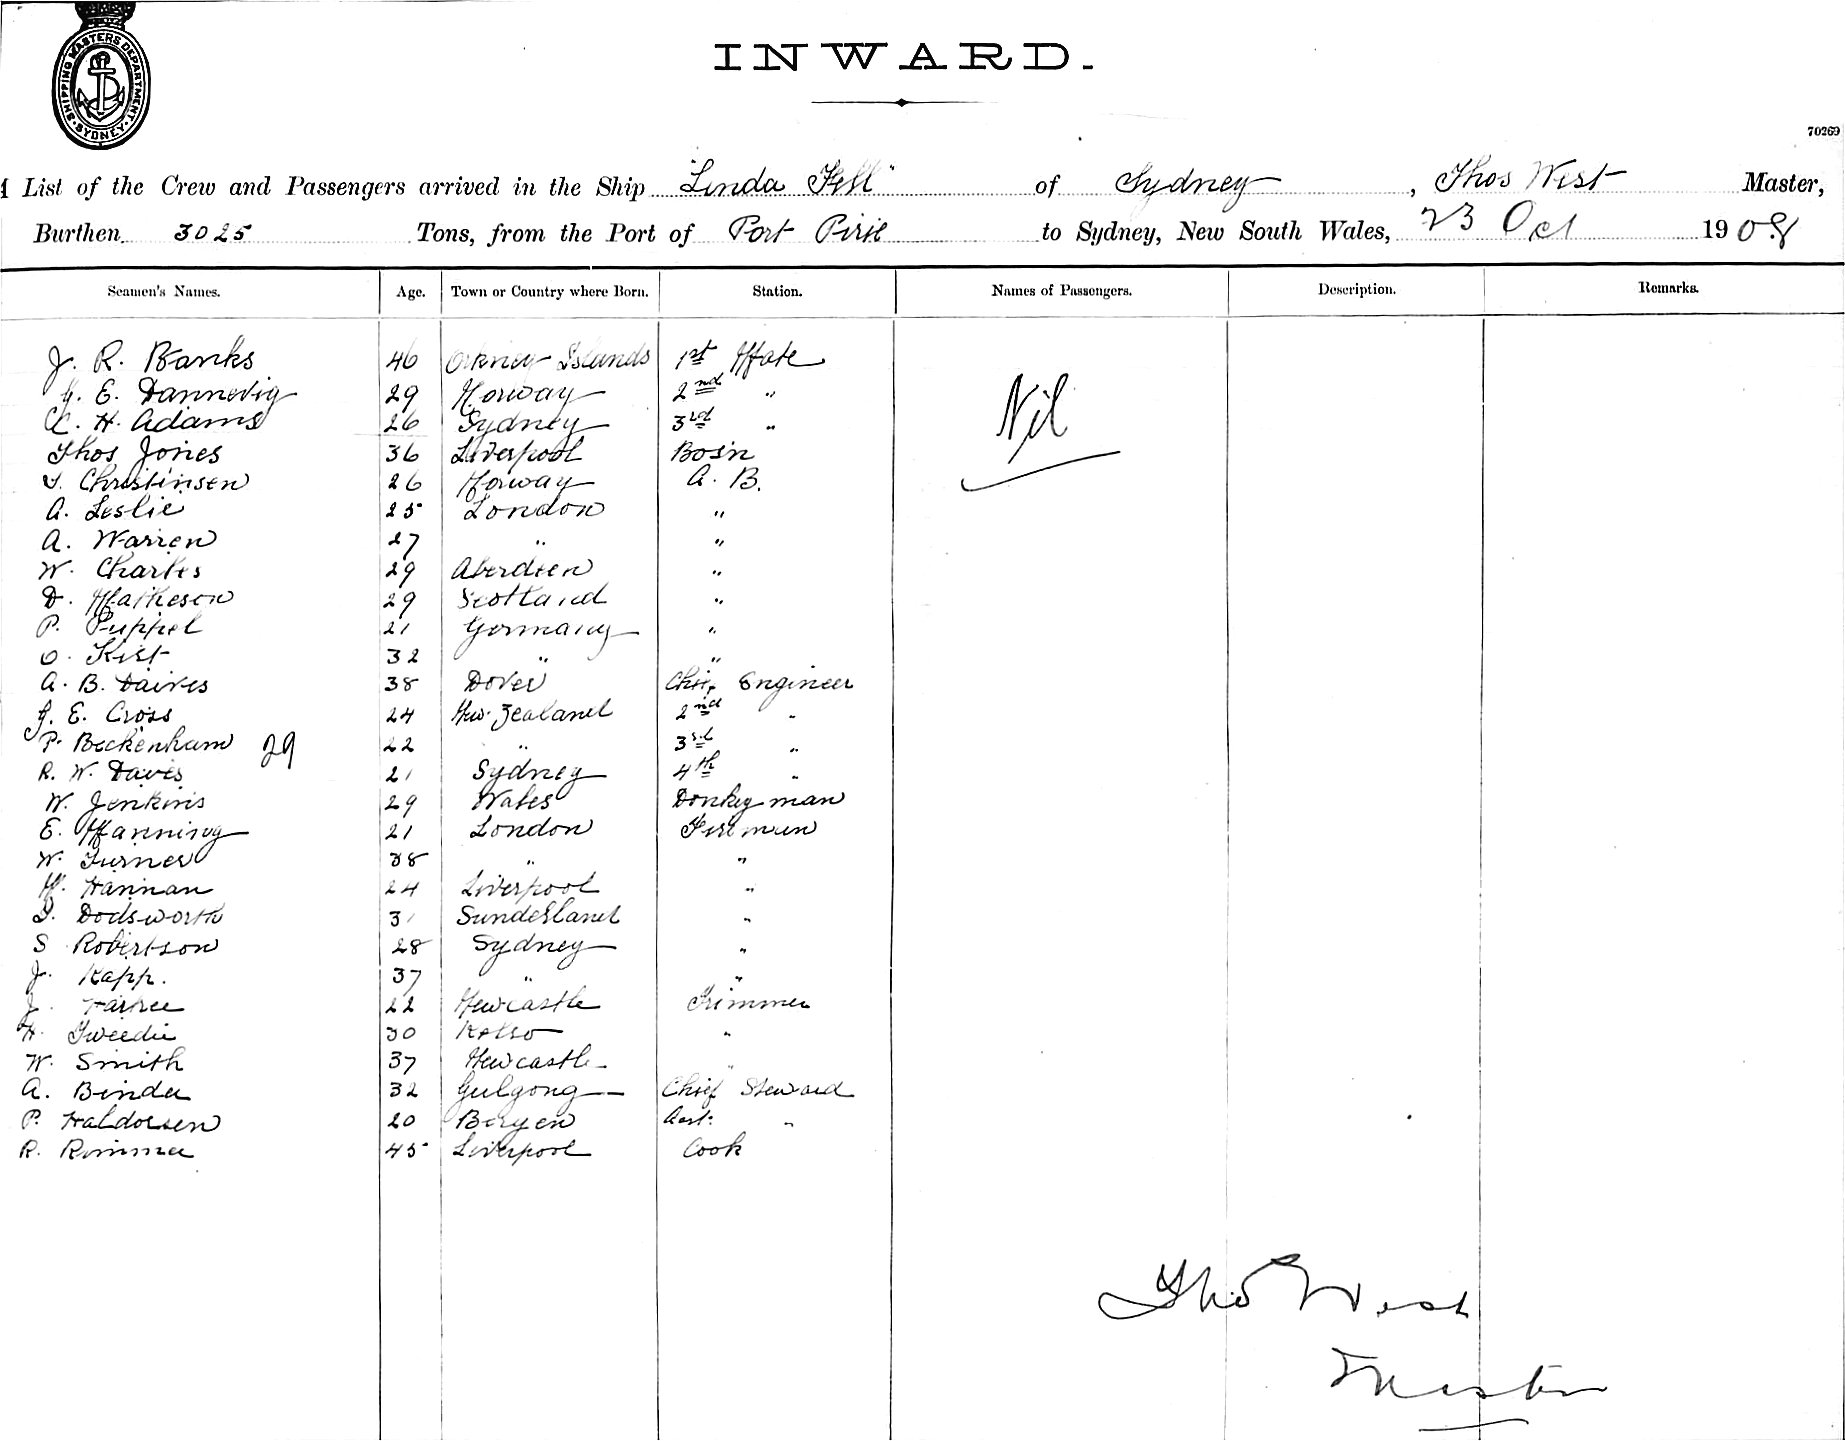 SHIPPING MASTERS DEPARTMENT. SYDNEY
INWARD.
70269
List of the Crew and Passengers arrived in the Ship "Linda Fell" of Sydney, Thos West Master,
Burthen 3025 Tons, from the Port of Port Pirie to Sydney, New South Wales, 23 Oct 1908
Seamen's Names. Age. Town or Country where Born. Station. Names of Passengers. Description. Remarks.
J. R. Banks 46 Orkney Islands 1st Mate
G. E. Dannevig 29 Norway 2nd " Nil
C. H. Adams 26 Sydney 3rd "
Thos Jones 36 Liverpool Bos'n
Christinsen 26 Norway A. B.
A. Leslie 25 London "
A. Warren 27 " "
W. Charles 29 Aberdeen "
D. Matheson 29 Scotland "
P. Puppel 21 Germany "
O. Kist 32 " "
A. B. Daires 38 Dover Chief Engineer
G. E. Cross 24 New Zealand 2nd "
P. Beckenham 29 22 " 3rd "
R. W. Davis 21 Sydney 4th "
W. Jenkins 29 Wales Donkeyman
E. Manning 21 London Fireman
W. Turner 38 " "
M. Hannan 24 Liverpool "
Dodsworth 31 Sunderland "
S Robertson 28 Sydney "
J. Kapp. 37 " "
J. 22 Newcastle Trimmer
H. Tweedie 30 Kelso "
W. Smith 37 Newcastle "
A. Binder 32 Gulgong Chief Steward
P. Haldorsen 20 Bergen Asst. "
R. Rimmer 45 Liverpool Cook
Thos West
Master